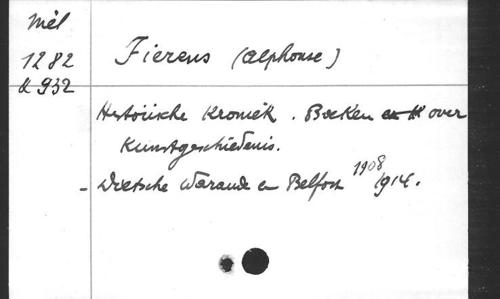 Mél
1282
& 932
Fierens (Alphonse)
Historische Kroniek. Boeken over
Kunstgeschiedenis.
- Dietsche Warande en Belfort 1908/1914.